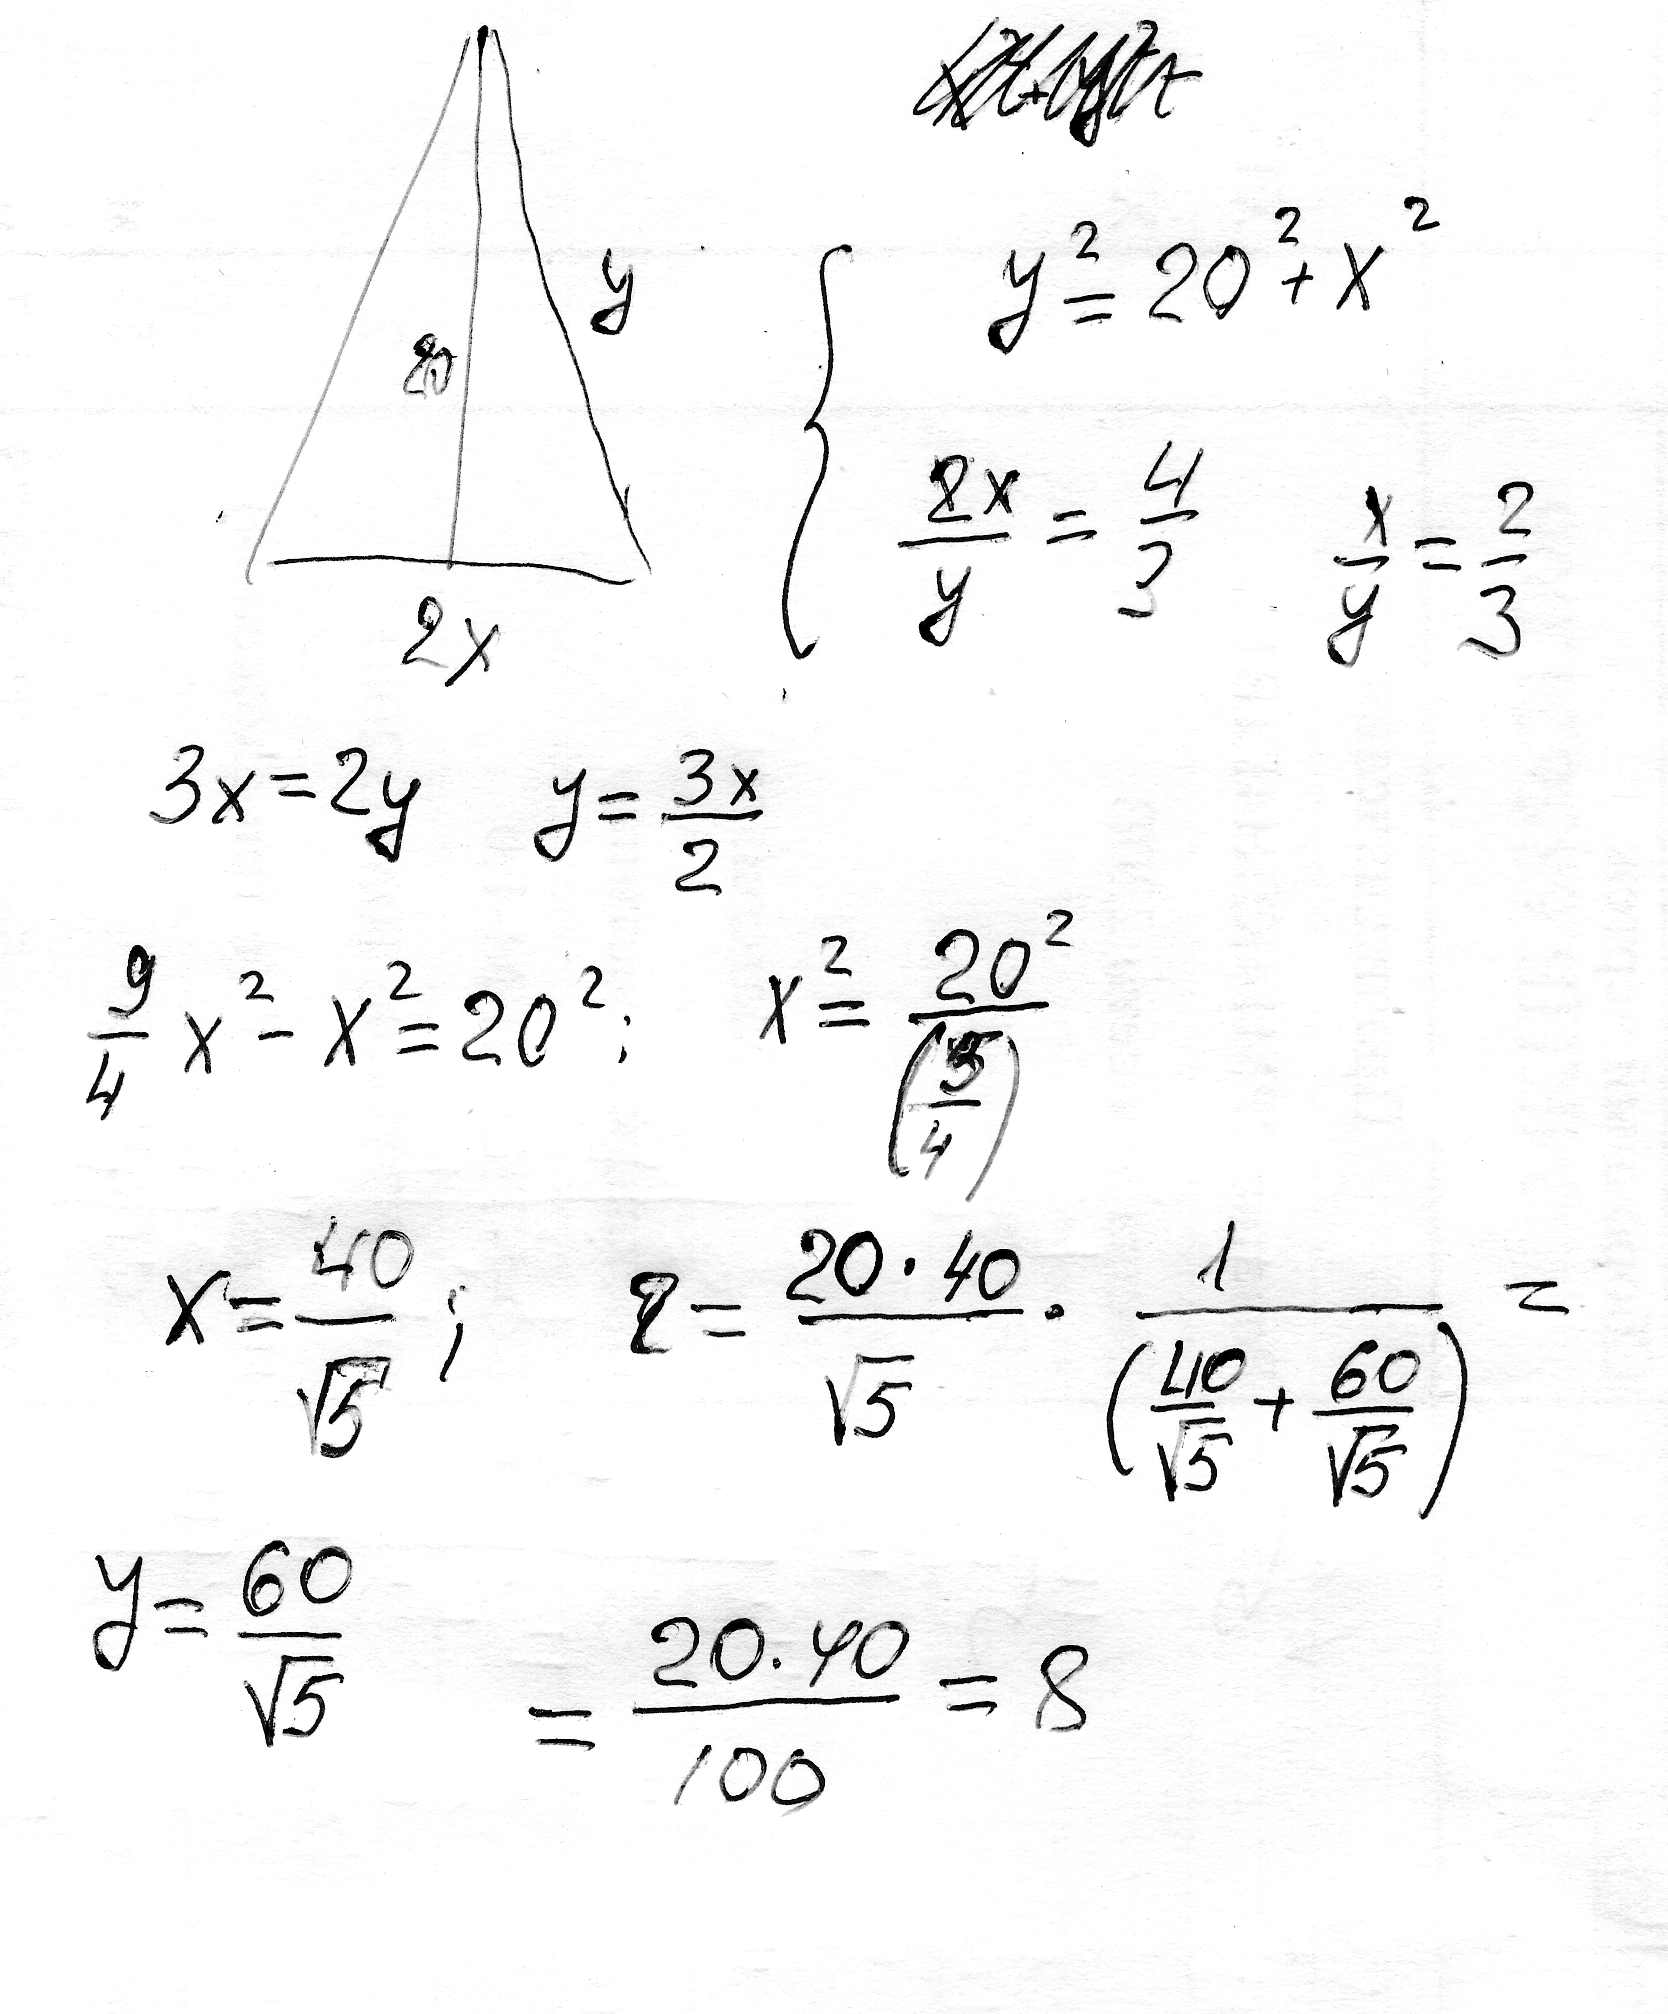 20
y
2x
y² = 20² + x²
2x/y = 4/3    x/y = 2/3
3x = 2y    y = 3x/2
9/4 x² - x² = 20²;    x² = 20²/(5/4)
x = 40/√5;    r = 20·40/√5 · 1/(40/√5 + 60/√5) =
y = 60/√5    = 20·40/100 = 8